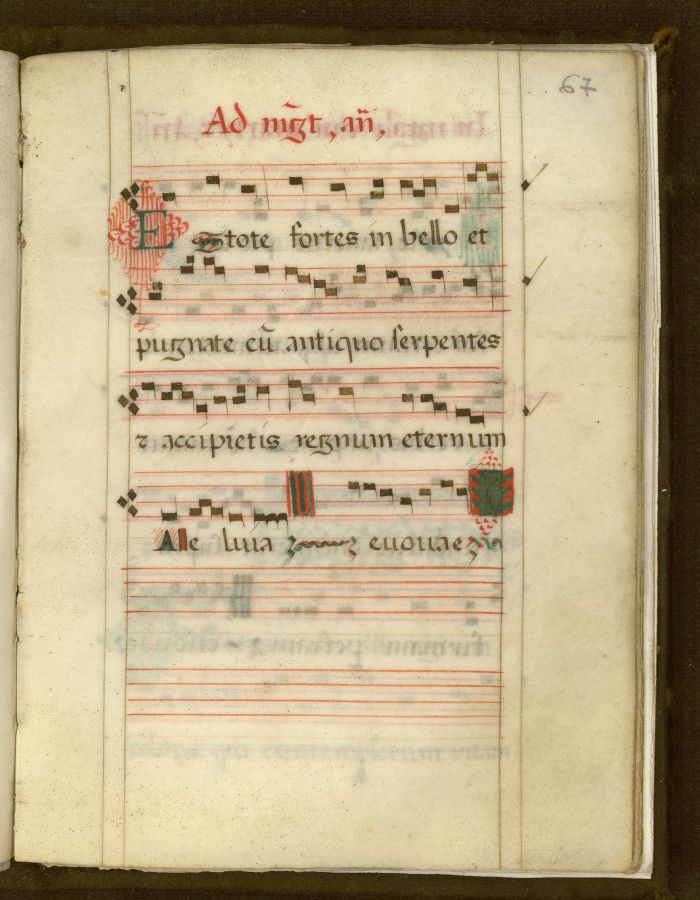 67
Ad mg̃t, añ,
EStote fortes in bello et
pugnate cũ antiquo serpentes
⁊ accipietis regnum eternum
Alle luia euouae